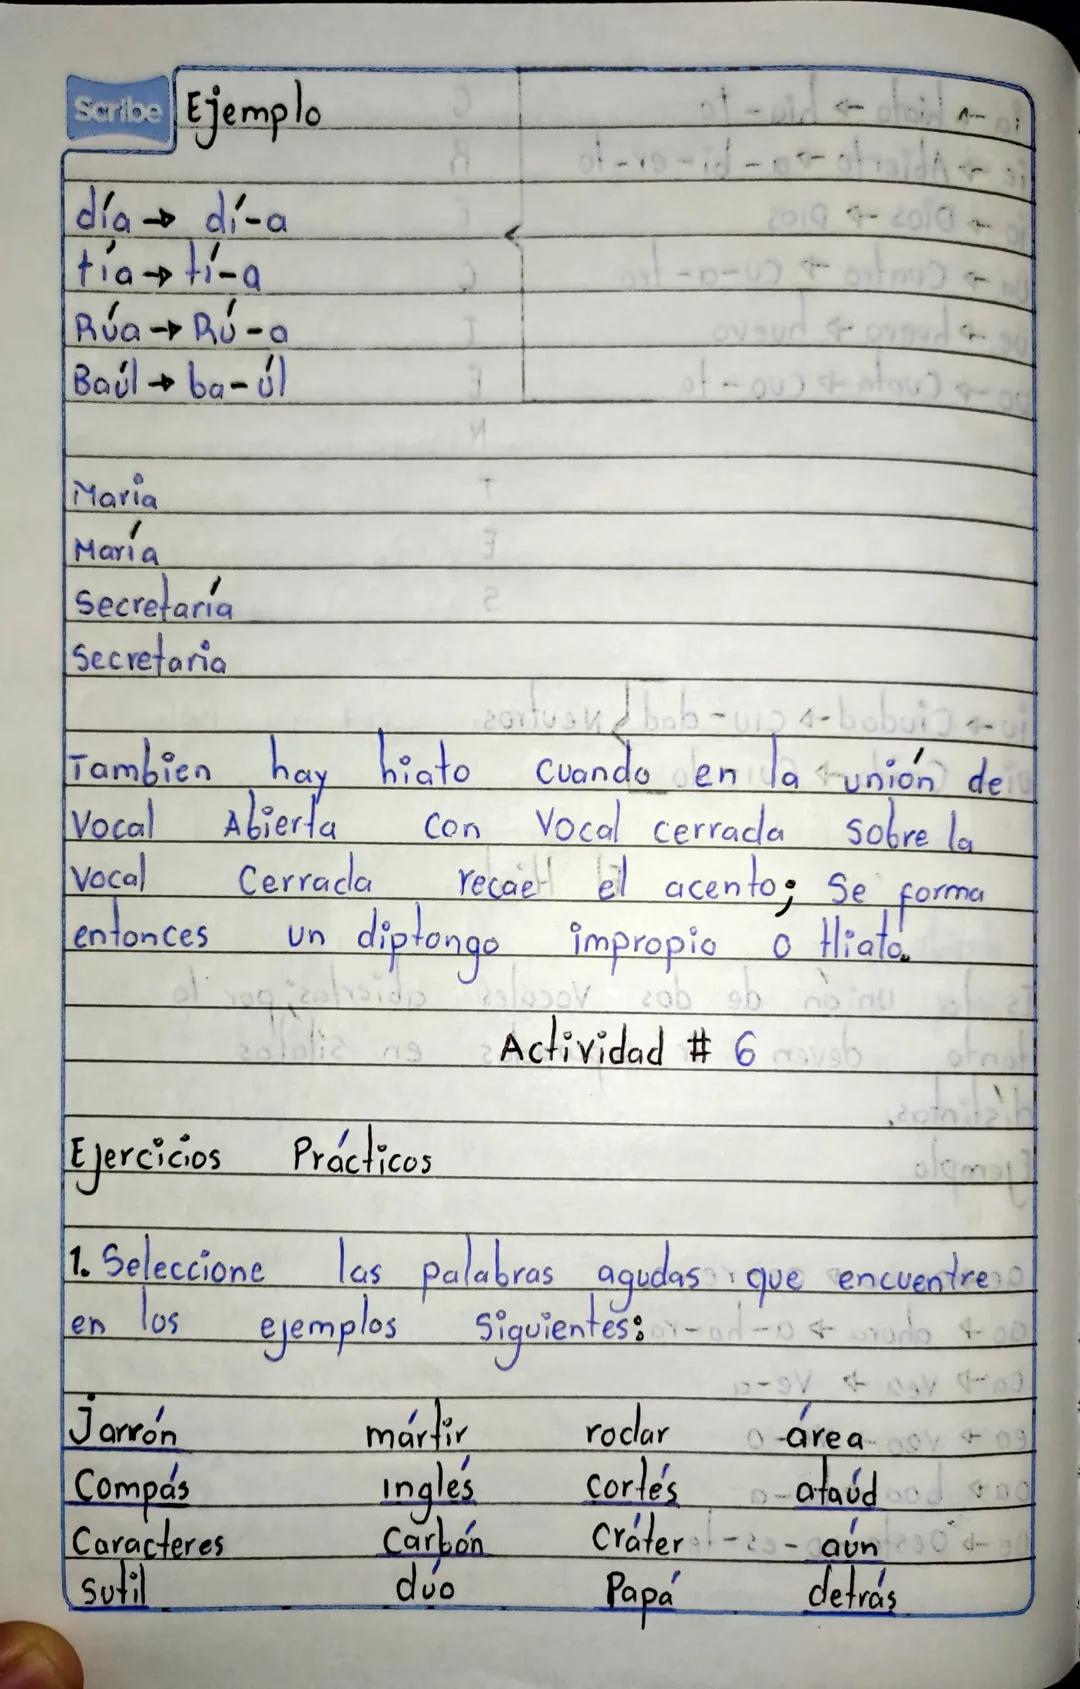 Scribe Ejemplo
día → dí-a
tía → tí-a
Rúa → Rú-a
Baúl → ba-úl
Maria
María
Secretaría
Secretaria
Tambien hay hiato cuando en la unión de
Vocal Abierta con Vocal cerrada sobre la
Vocal Cerrada recae el acento; Se forma
entonces un diptongo impropio o Hiato.
Actividad # 6
Ejercicios Prácticos
1. Seleccione las palabras agudas que encuentre
en los ejemplos siguientes:
Jarrón mártir rodar área
Compás inglés cortés ataúd
Caracteres Carbón Cráter aún
Sutil dúo Papá detrás